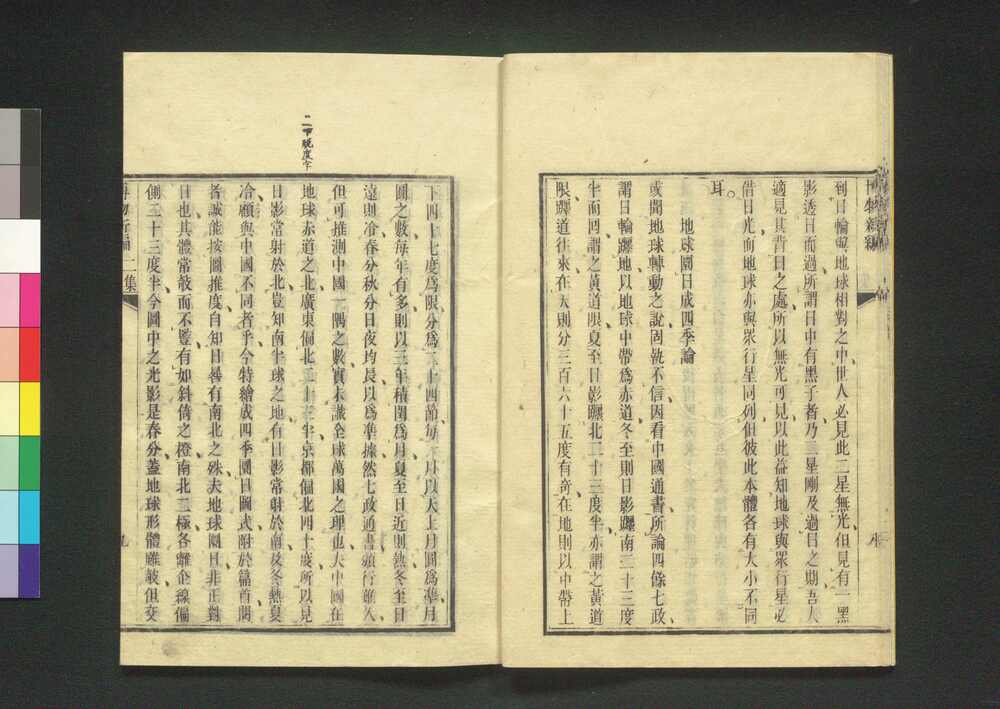 到日輪與地球相對之中世人必見此二星無光但見有一黑
影透日而過所謂日中有黑子者乃三星剛及過日之期吾人
適見其背日之處所以無光可見以此益知地球與眾行星必
借日光而地球亦與眾行星同列但彼此本體各有大小不同
耳。
地球圜日成四季論
或聞地球轉動之說固執不信因看中國通書所論四餘七政
謂日輪躔地以地球中帶為赤道冬至則日影躔南二十三度
半而四謂之黃道限夏至日影躔北二十三度半亦謂之黃道
限躔道往來在天則分三百六十五度有奇在地則以中帶上
下四十七度為限分為二十四節每年月以天上月圓為準月
圓之數每年有多則以三年積閏為月夏至日近則熱冬至日
遠則冷春分秋分日夜均長以為準據然七政通書頒行雖久
但可推測中國一隅之數實未識全球萬國之理也夫中國在
二下脫度字
地球赤道之北廣東偏北二十三半京都偏北四十度所以見
日影常射於北豈知南半球之地有日影常射於南及冬熱夏
冷顧與中國不同者乎今特繪成四季圜日圖式附於篇首閱
者誠能按圖推度自知日晷有南北之殊夫地球圜日非正對
日也其體常敧而不豎有如斜倚之橙南北二極各離企線偏
側二十三度半今圖中之光影是春分蓋地球形體雖敧但交
二集
九